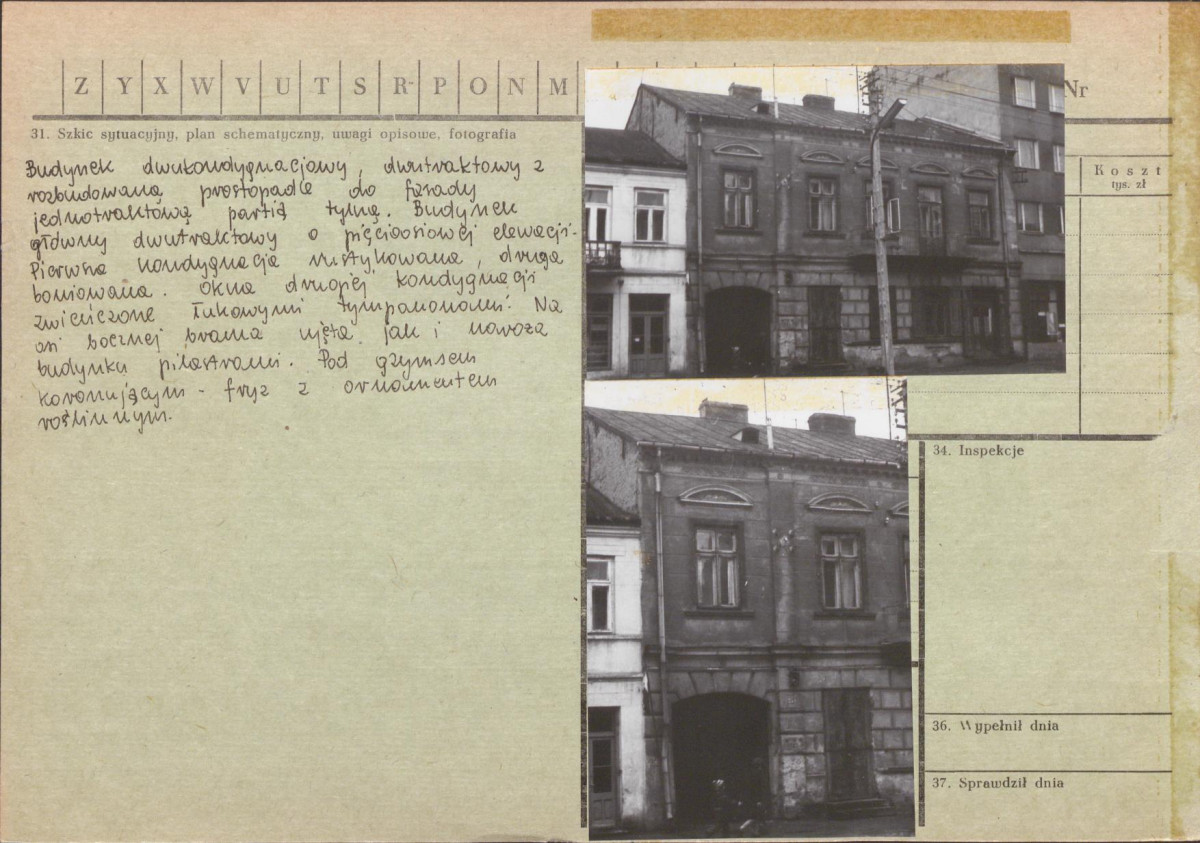 Z Y X W V U T S R P O N M
Nr
31. Szkic sytuacyjny, plan schematyczny, uwagi opisowe, fotografia
Budynek dwukondygnacjowy, dwutraktowy z
rozbudowaną prostopadle do fasady
jednotraktową partią tylną. Budynek
główny dwutraktowy o pięcioosiowej elewacji.
Pierwsza kondygnacja rustykowana, druga
boniowana. Okna drugiej kondygnacji
zwieńczone łukowymi tympanonami. Na
osi bocznej brama ujęta jak i naroża
budynku pilastrami. Pod gzymsem
koronującym - fryz z ornamentem
roślinnym.
Koszt
tys. zł
34. Inspekcje
36. Wypełnił dnia
37. Sprawdził dnia